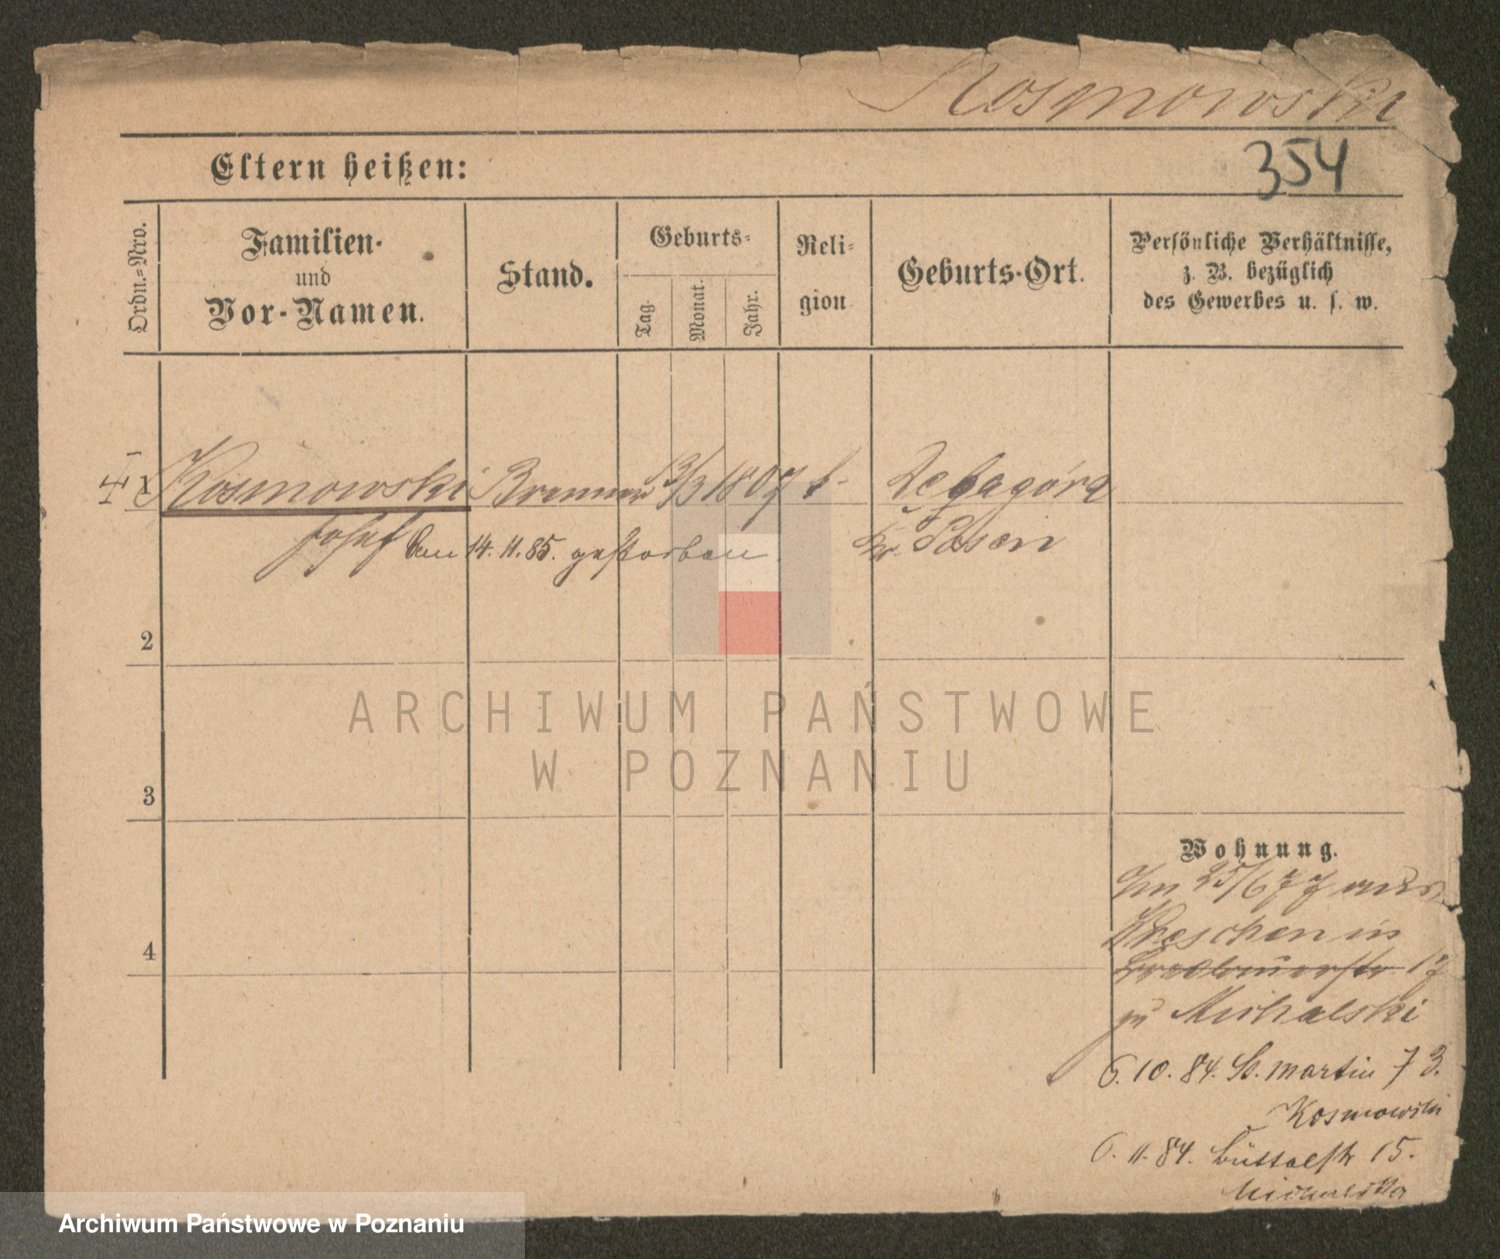 Kosmowski
354
Eltern heißen:
Ordn.-Nro.
Familien-
und
Vor-Namen.
Stand.
Geburts-
Tag.
Monat.
Jahr.
Reli-
gion
Geburts-Ort.
Persönliche Verhältnisse,
z. B. bezüglich
des Gewerbes u. s. w.
1 Kosmowski Brenner 13/3 1807 k.
Josef den 14.11.85. gestorben.
Kr. Posen
2
3
4
Wohnung.
Am 25/6 77 aus
Wreschen in
17
zu Michalski
6.10.84. St. Martin 73.
Kosmowski
6.11.84. Büttelstr 15.
Michalska
ARCHIWUM PAŃSTWOWE
W POZNANIU
Archiwum Państwowe w Poznaniu